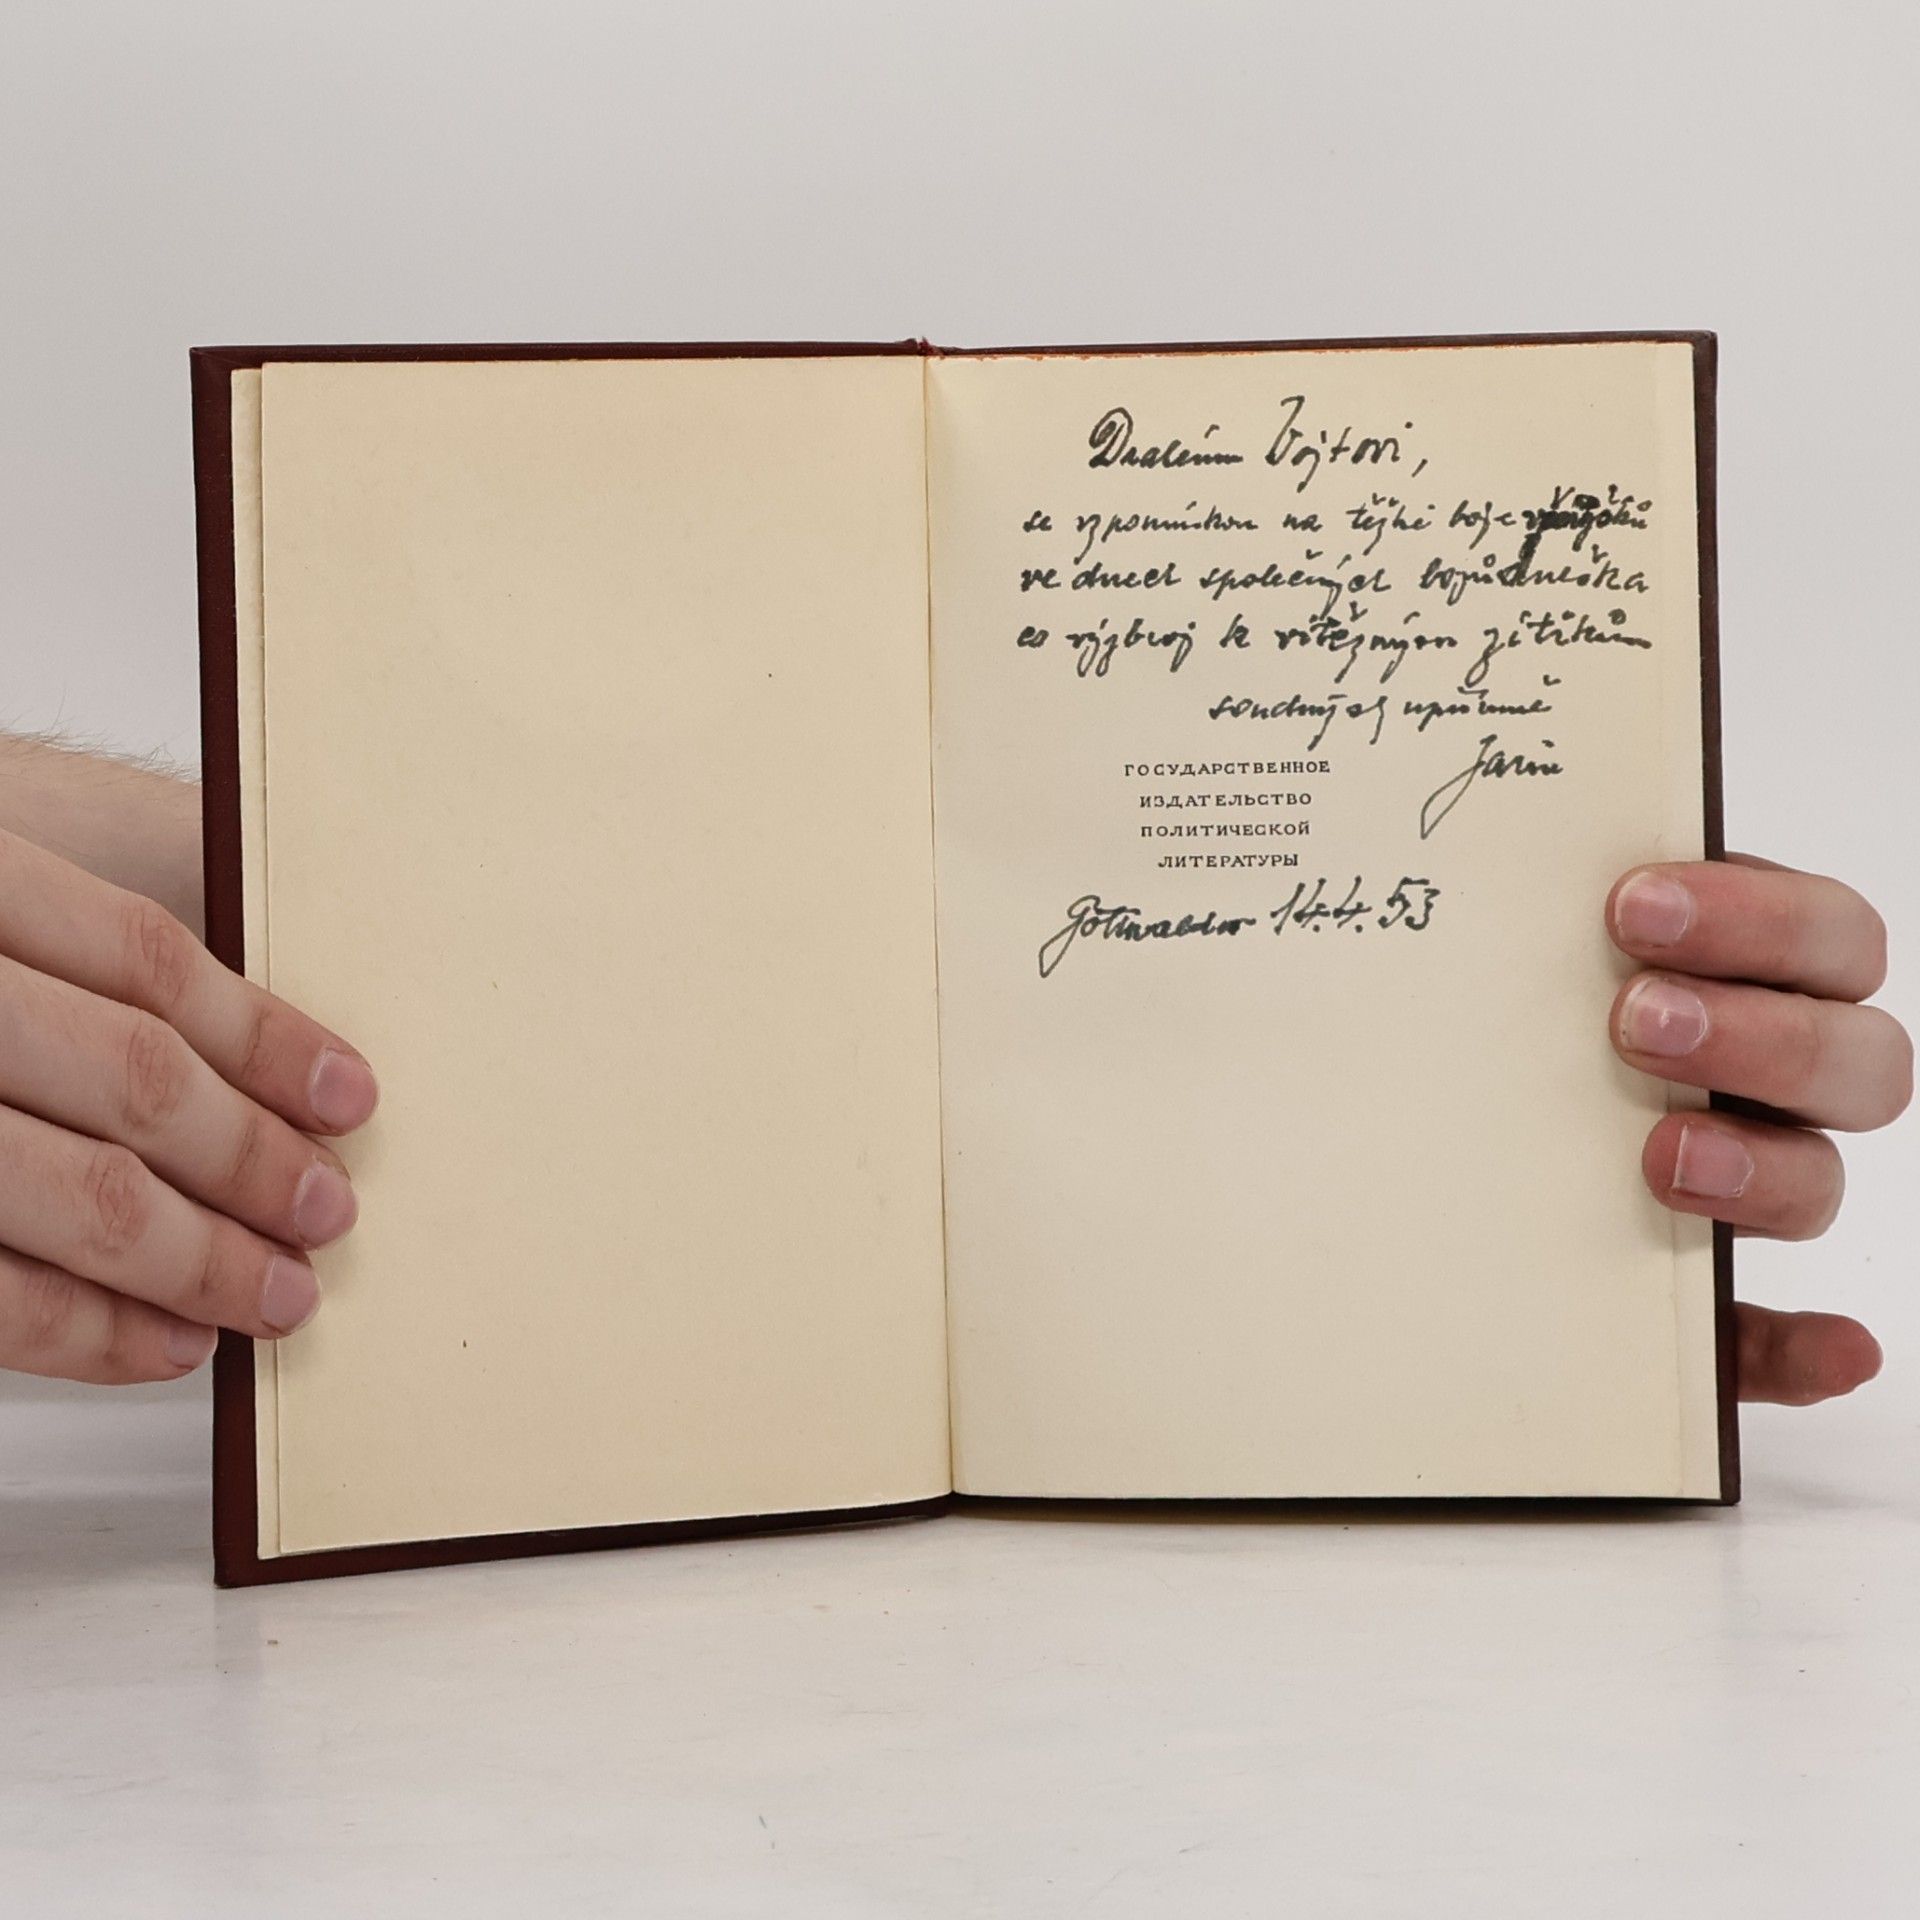 Drahému Vojtovi,
se vzpomínkou na těžké boje včerejšků
ve dnech společných bojů dneška
co výzbroj k vítězným zítřkům
soudružsky upřímně
Jarin
ГОСУДАРСТВЕННОЕ
ИЗДАТЕЛЬСТВО
ПОЛИТИЧЕСКОЙ
ЛИТЕРАТУРЫ
Gottwaldov 14.4.53